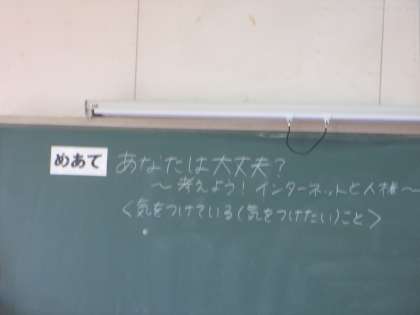 めあて あなたは大丈夫?
～考えよう! インターネットと人権～
<気をつけている(気をつけたい)こと>